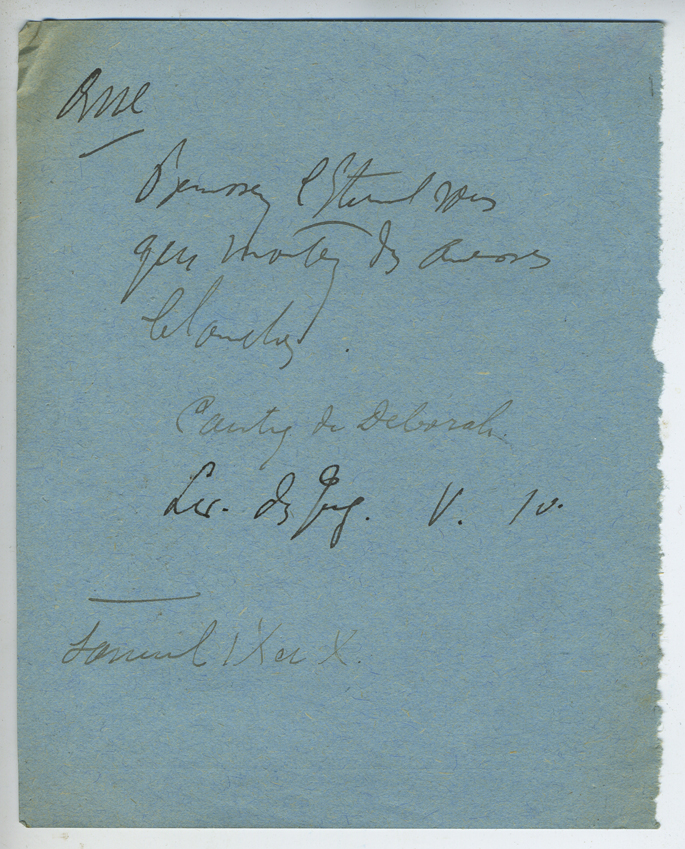 Ane
Bénissez l'Eternel vous
qui montez des anesses
blanches.
Cantiq de Deborah.
Liv. des Jug. V. 10.
Samuel IX et X.